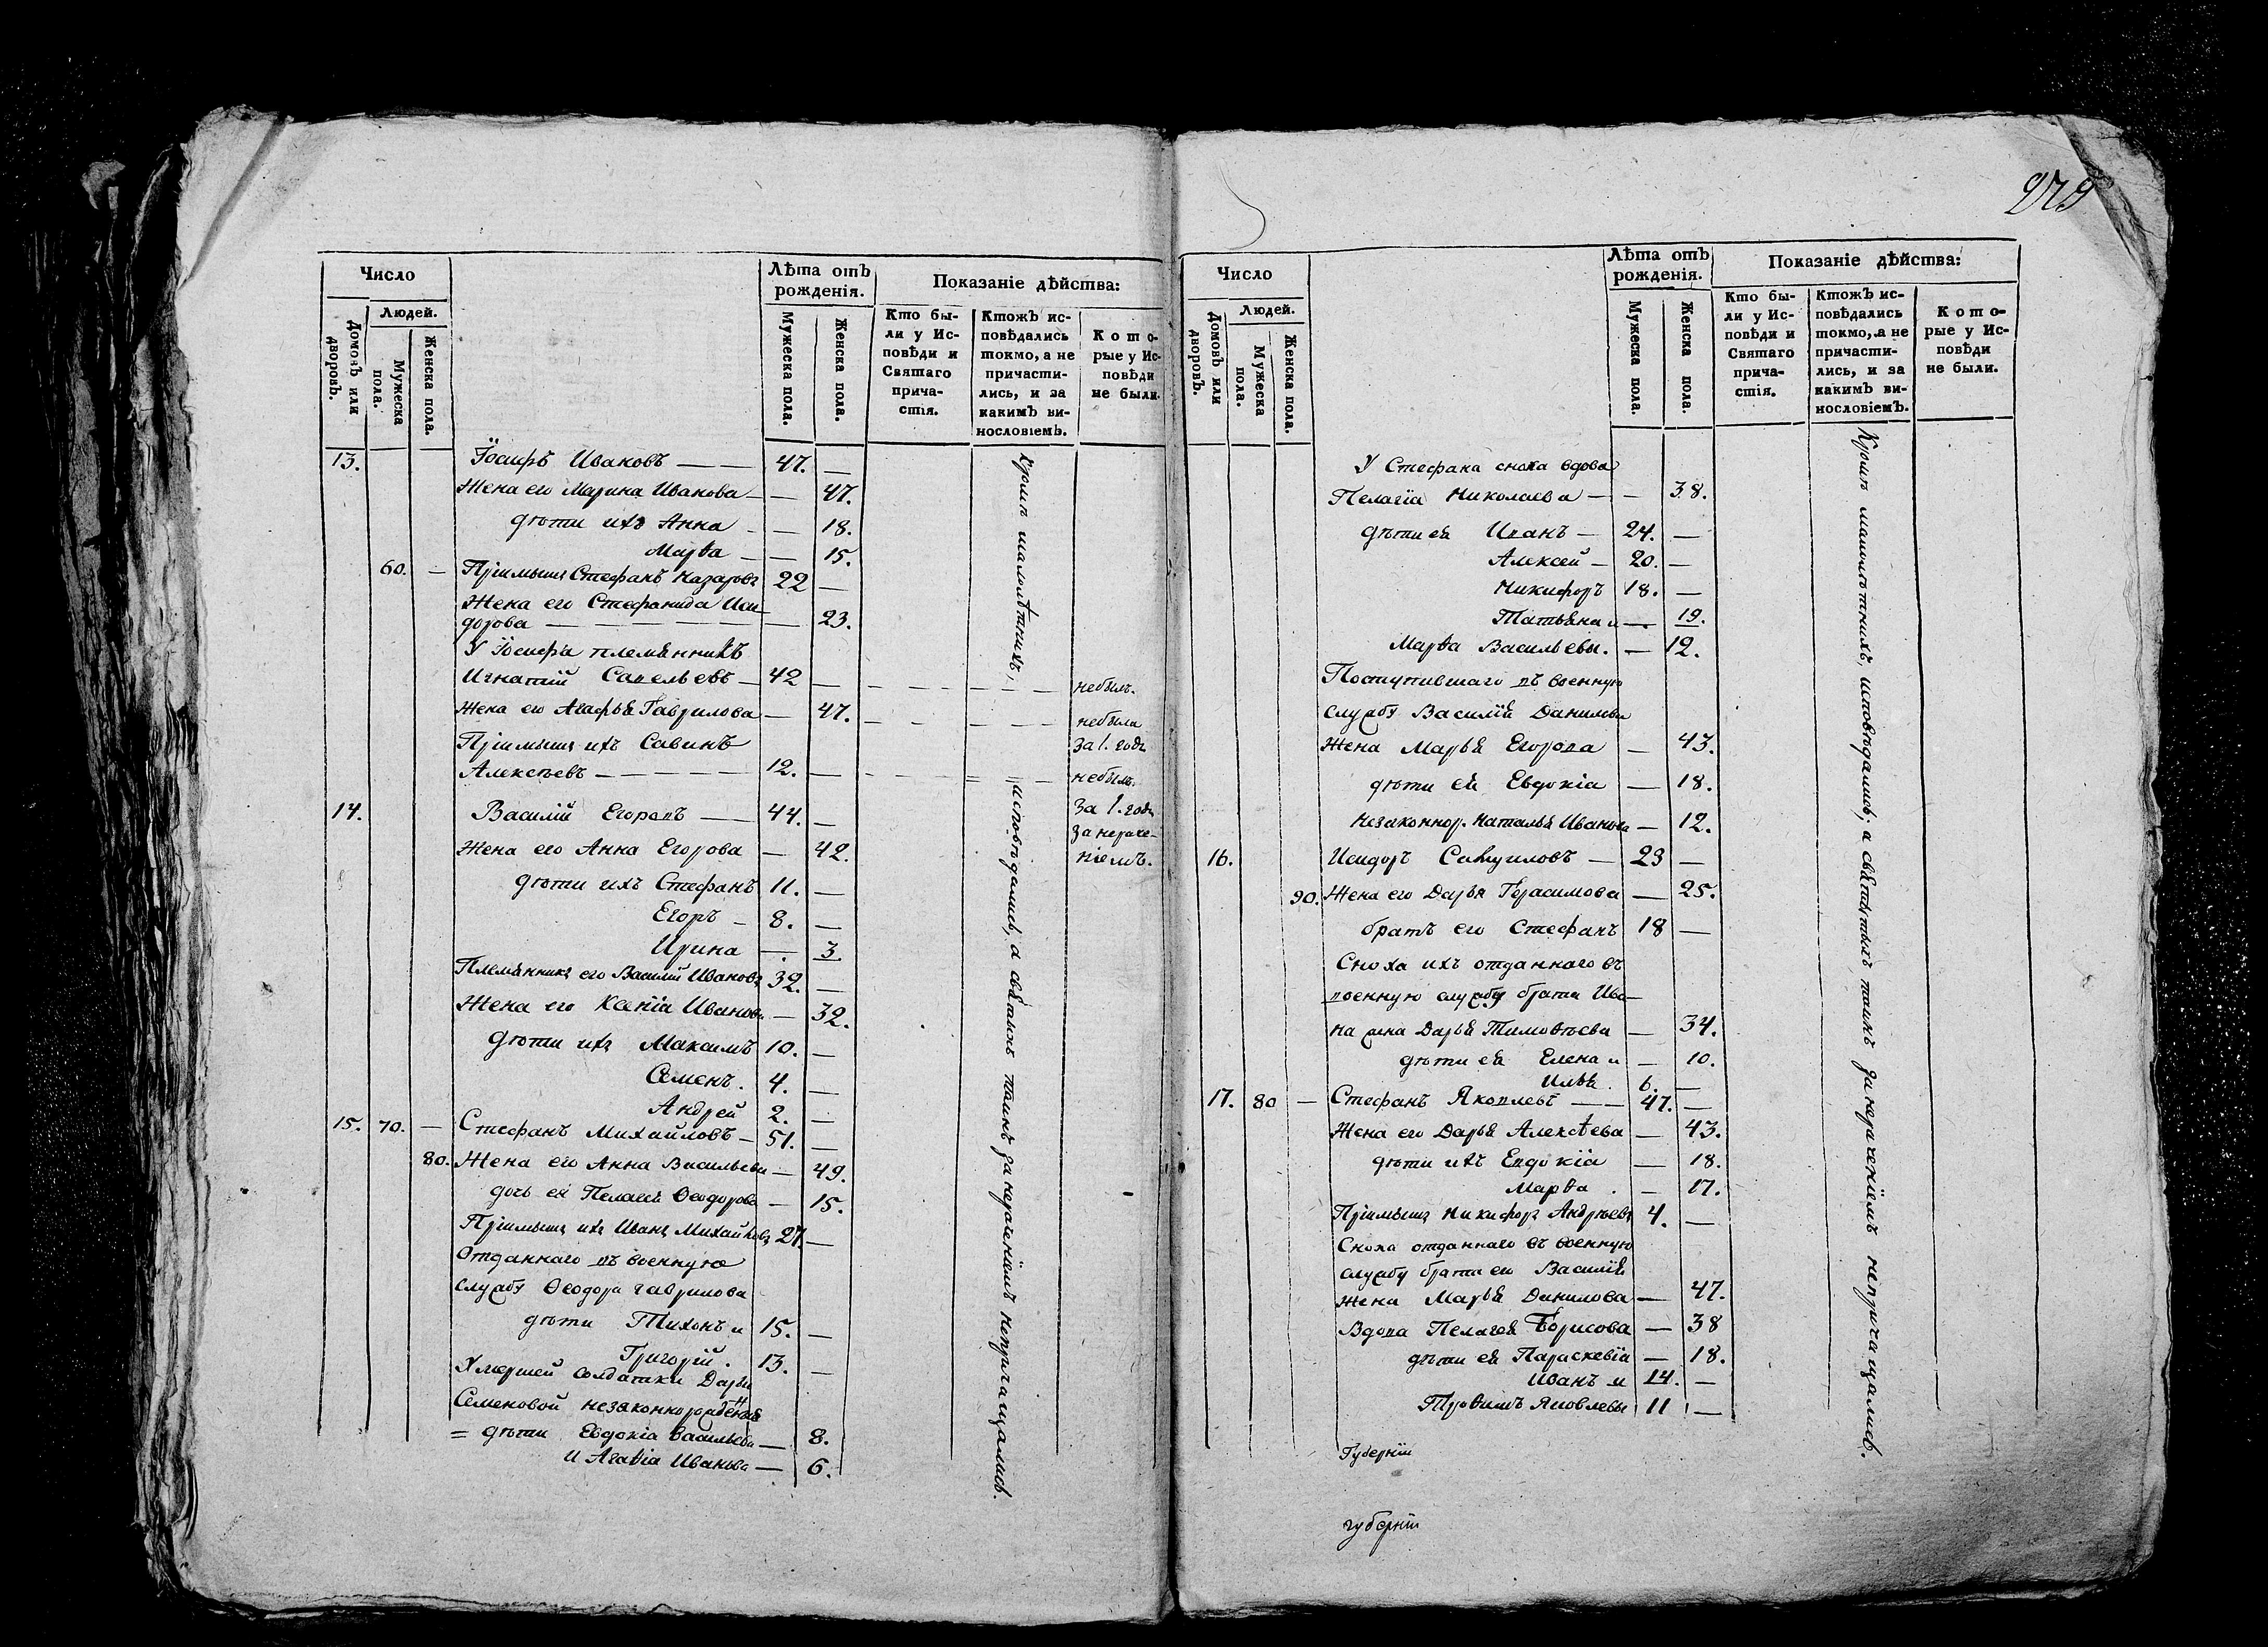 279
Число
Людей.
Домовъ или дворовъ.
Мужеска пола.
Женска пола.
Лѣта отъ
рожденія.
Мужеска пола.
Женска пола.
Показаніе дѣйства:
Кто бы-
ли у Ис-
повѣди и
Святаго
прича-
стія.
Ктожъ ис-
повѣдались
токмо, а не
причасти-
лись, и за
какимъ ви-
нословіемъ.
Кото-
рые у Ис-
повѣди
не были.
13. Іосифъ Ивановъ — — 47. —
Жена его Марина Иванова — — 47.
дѣти ихъ Анна — — 18.
Марѳа — — 15.
60. — Пріимышъ Стефанъ Назаровъ 22 —
Жена его Стефанида Иси-
дорова — — — — — — — 23.
У Іосифа племянникъ
Игнатій Савельевъ — 42 — — — — — — — небылъ.
Жена его Агафья Гаврилова — 47. — — — — — небыла
Пріимышъ ихъ Савинъ за 1. годъ
Алексѣевъ — — — — — 12. — — — = — — небылъ.
14. Василій Егоровъ — 44. — За 1. годъ
за нераче-
Жена его Анна Егорова — 42. ніемъ.
дѣти ихъ Стефанъ 11. —
Егоръ — 8. —
Ирина — 3.
Племянникъ его Василій Ивановъ 32. —
Жена его Ксенія Иванова — 32.
дѣти ихъ Максимъ 10. —
Семенъ. 4. —
Андрей 2. —
15. 70. — Стефанъ Михайловъ — 51. —
80. Жена его Анна Васильева — 49.
дочь ея Пелагея Ѳеодорова — 15.
Пріимышъ ихъ Иванъ Михайловъ 27. —
Отданнаго въ военную
службу Ѳеодора Гаврилова
дѣти Тихонъ и 15. —
Григорій. 13. —
Умершей солдатки Дарьи
Семеновой незаконнорожденныя
= дѣти Евдокіа Васильева — 8.
и Агаѳіа Иванова — 6.
Кромѣ малолѣтнихъ, исповѣдались, а святыхъ таинъ за нераченіемъ непричащались.
Число
Людей.
Домовъ или дворовъ.
Мужеска пола.
Женска пола.
Лѣта отъ
рожденія.
Мужеска пола.
Женска пола.
Показаніе дѣйства:
Кто бы-
ли у Ис-
повѣди и
Святаго
прича-
стія.
Ктожъ ис-
повѣдались
токмо, а не
причасти-
лись, и за
какимъ ви-
нословіемъ.
Кото-
рые у Ис-
повѣди
не были.
У Стефана сноха вдова
Пелагіа Николаева — — 38.
дѣти ея Иванъ — 24. —
Алексей — 20. —
Никифоръ 18. —
Татьяна и — 19.
Марѳа Васильевы. — 12.
Поступившаго въ военную
службу Василія Данилова
жена Марья Егорова — 43.
дѣти ея Евдокіа — 18.
Незаконнор. Наталья Иванова — 12.
16. Исидоръ Самуиловъ — 23 —
90. Жена его Дарья Герасимова — 25.
братъ его Стефанъ 18 —
Сноха ихъ отданнаго въ
военную службу брата Ива-
на жена Дарья Тимоѳѣева — 34.
дѣти ея Елена и — 10.
Илья. 6. —
17. 80 — Стефанъ Яковлевъ — — 47. —
Жена его Дарья Алексѣева — 43.
дѣти ихъ Евдокіа — 18.
Марѳа. — 17.
Пріимышъ Никифоръ Андреевъ 4. —
Сноха отданнаго въ военную
службу брата его Василія
жена Марья Данилова — 47.
Вдова Пелагея Борисова — 38
дѣти ея Параскевіа — 18.
Иванъ и 14. —
Троѳимъ Яковлевы 11 —
Губерніи
губерніи
Кромѣ малолѣтнихъ, исповѣдались; а святыхъ таинъ за нераченіемъ непричащались.